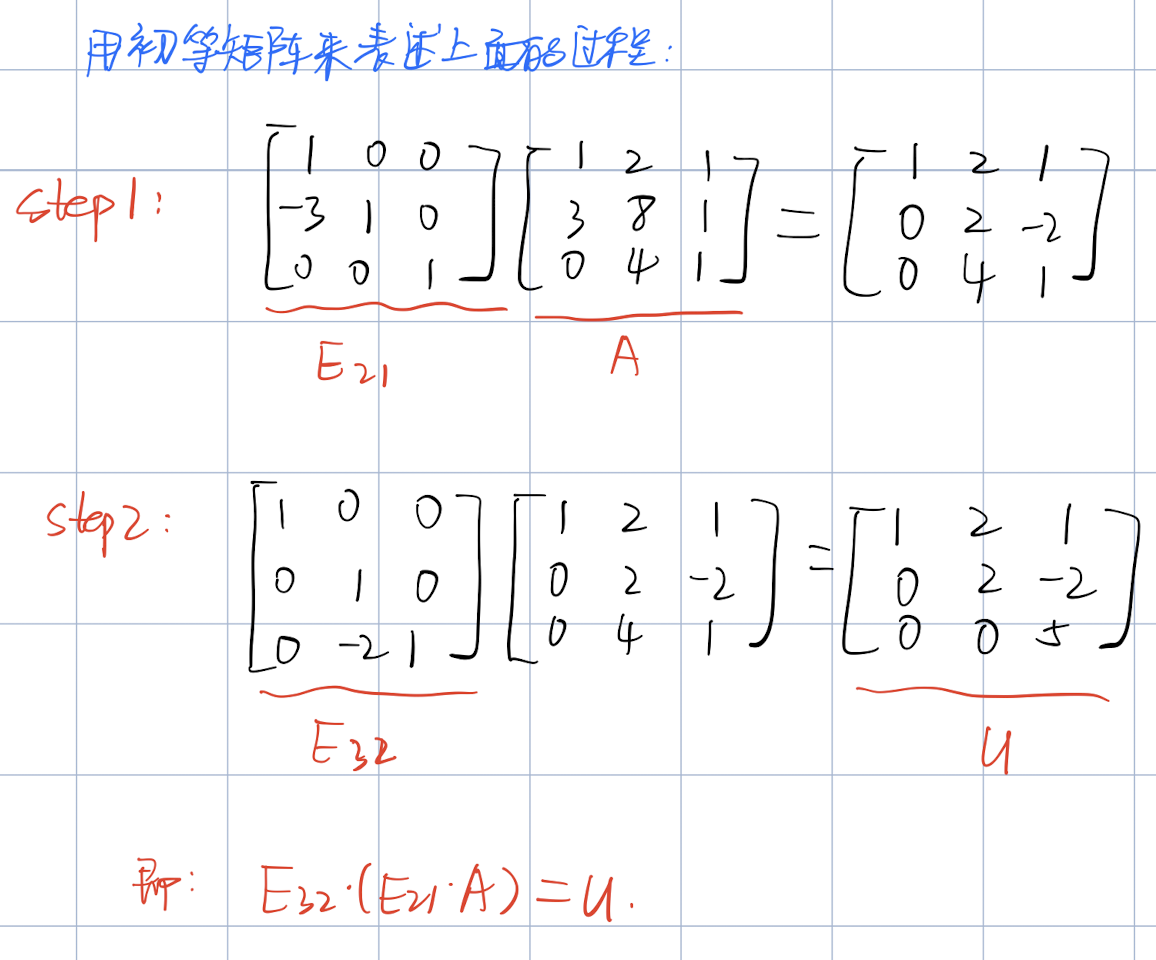 用初等矩阵来表述上面的过程:
step1: [1 0 0; -3 1 0; 0 0 1] [1 2 1; 3 8 1; 0 4 1] = [1 2 1; 0 2 -2; 0 4 1]
E21 A
step2: [1 0 0; 0 1 0; 0 -2 1] [1 2 1; 0 2 -2; 0 4 1] = [1 2 1; 0 2 -2; 0 0 5]
E32 U
即: E32·(E21·A)=U.